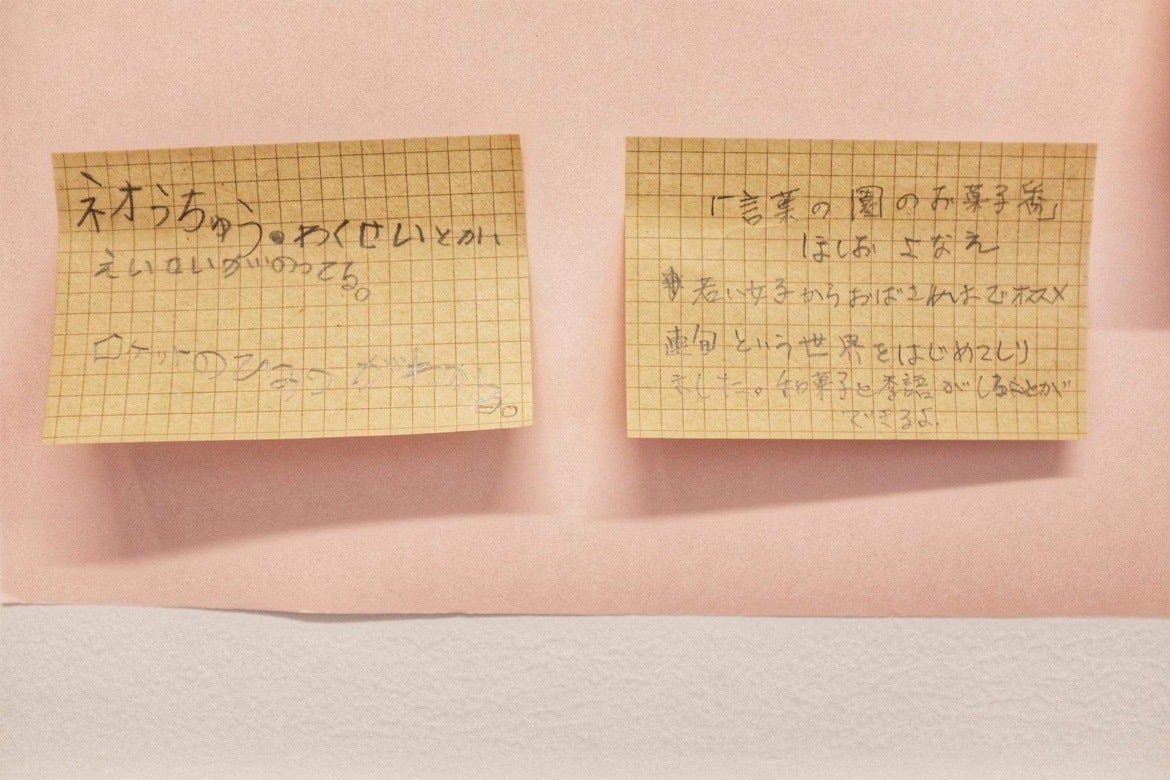 ネオうちゅう。わくせいとかい
えいせいがのってる。
ロケットのひみつがわか
る。
「言葉の園のお菓子番」
ほしお さなえ
若い女子からおばさんまでオススメ
連句という世界をはじめてしり
ました。和菓子と季語がしることが
できるよ.